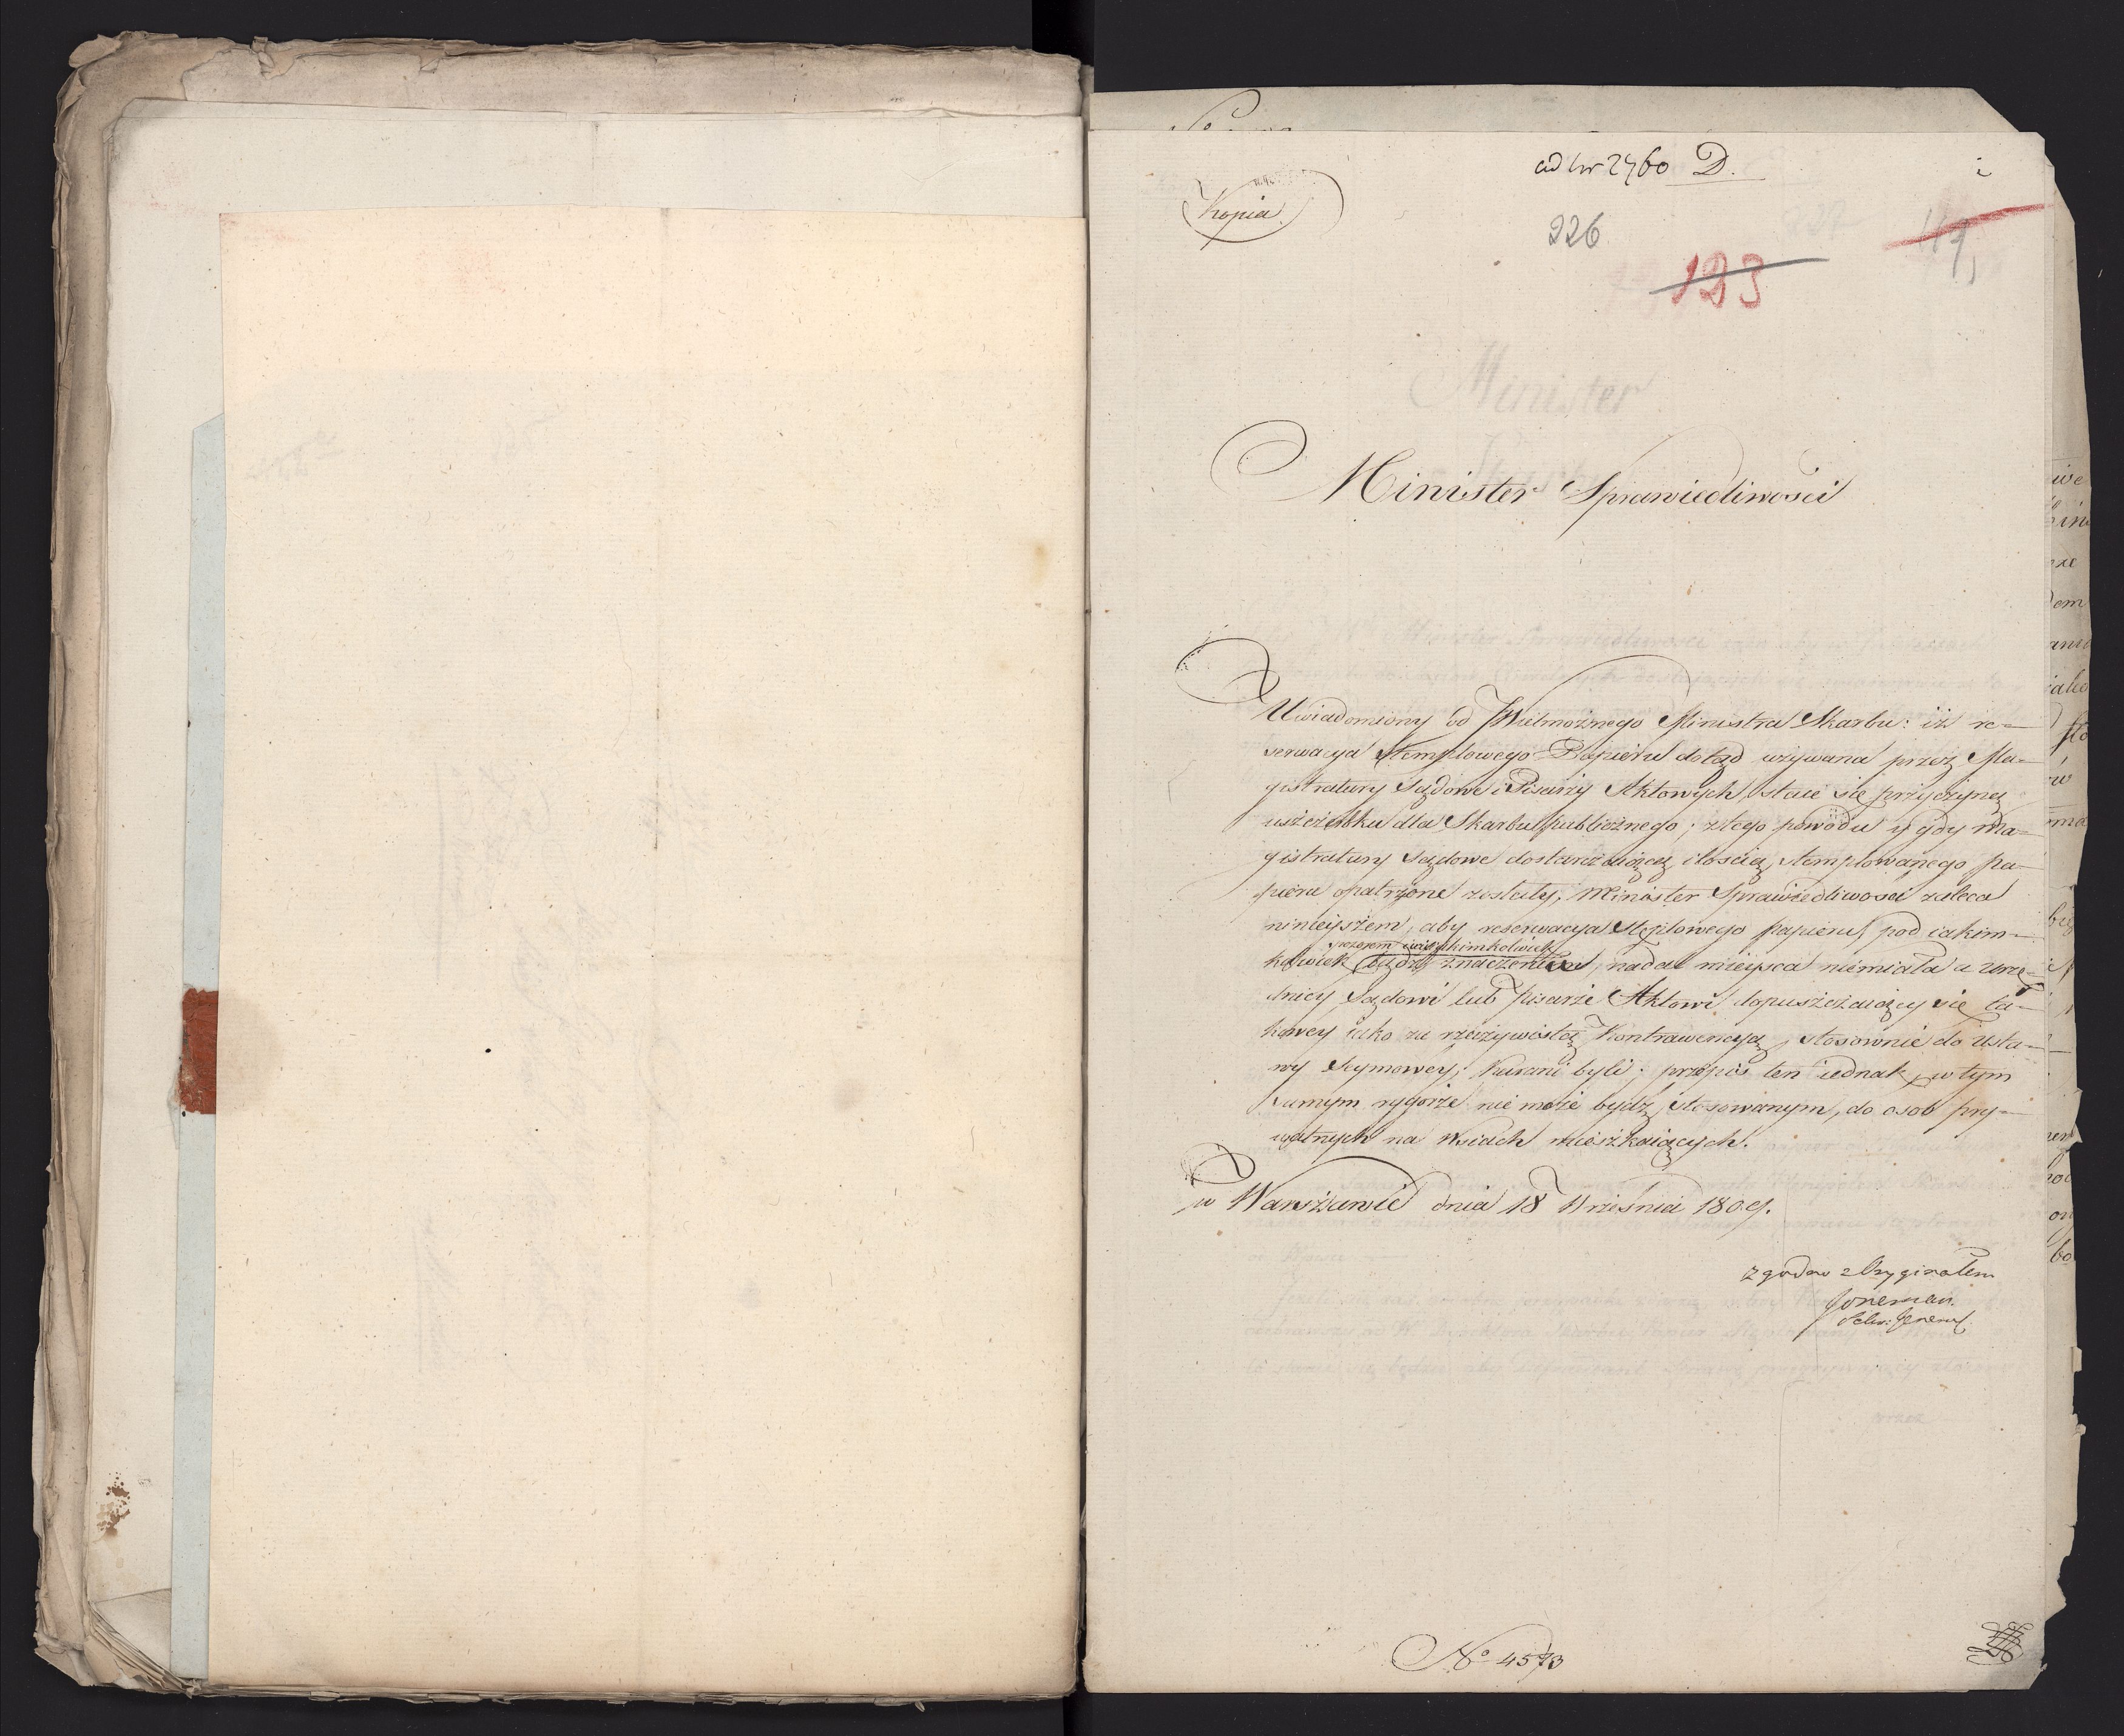 ad Nr 2760 D.
Kopia
226
123
117
Minister Sprawiedliwosci
Uwiadomiony od JWielmożnego Ministra Skarbu: iż re-
serwacya Stemplowego Papieru dotąd używana przez Ma-
gistratury Sądowe i Pisarzy Aktowych, staie się przyczyną
uszczerbku dla Skarbu publicznego; z tego powodu y gdy Ma-
gistratury Sądowe dostarczaiącą ilością stemplowanego pa-
pieru opatrzone zostały, Minister Sprawiedliwosci zaleca
ninieyszem, aby reserwacya Stęplowego papieru, pod iakim-
pozorem i wiakimkolwiek
kolwiek bądź znaczeniu, nadal mieysca niemiała a Urzę-
dnicy Sądowi lub Pisarze Aktowi dopuszczaiący się ta-
kowey iako za rzeczywistą Kontrawencyą, stosownie do Usta-
wy Seymowey, karani byli; przepis ten iednak, w tym
samym rygorze nie może bydz stosowanym, do osob pry-
watnych na wsiach mieszkaiących.
w Warszawie dnia 18 Wrzesnia 1809.
zgodno z Oryginałem
Joneman
Sekr: Jeneral.
No 4573